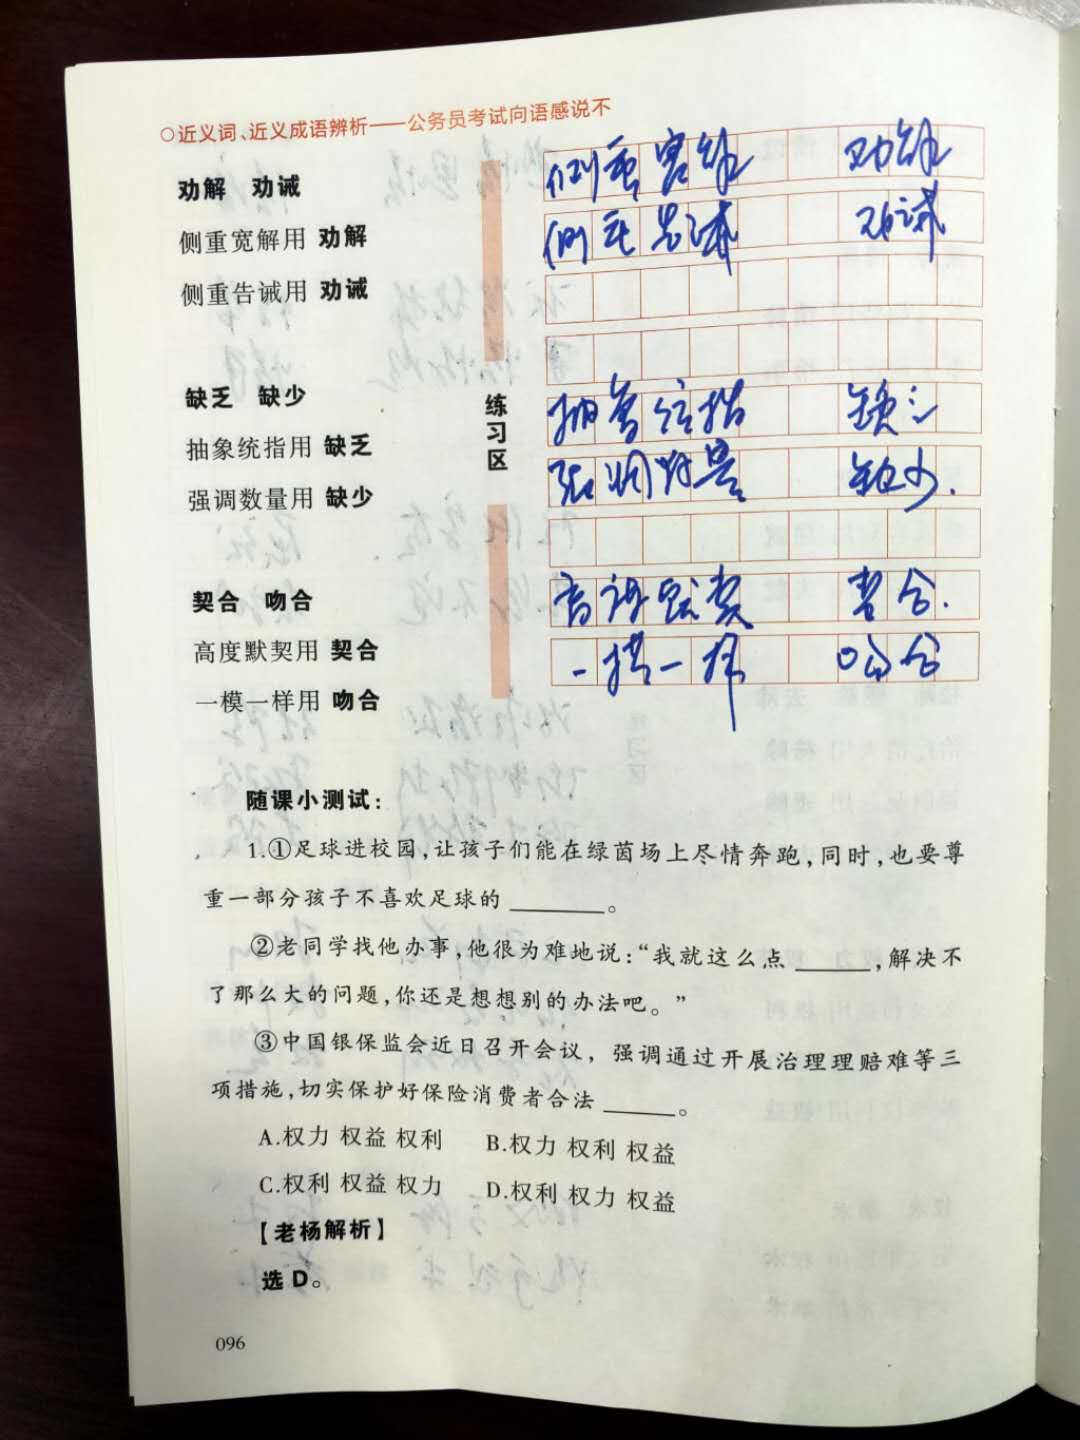 ○近义词、近义成语辨析——公务员考试向语感说不
劝解 劝诫
侧重宽解用 劝解
侧重告诫用 劝诫
缺乏 缺少
抽象统指用 缺乏
强调数量用 缺少
契合 吻合
高度默契用 契合
一模一样用 吻合
练习区
侧重宽解 劝解
侧重告诫 劝诫
抽象统指 缺乏
强调数量 缺少.
高度默契 契合.
一模一样 吻合
随课小测试:
1.①足球进校园,让孩子们能在绿茵场上尽情奔跑,同时,也要尊
重一部分孩子不喜欢足球的 ______。
②老同学找他办事,他很为难地说:“我就这么点 ______,解决不
了那么大的问题,你还是想想别的办法吧。”
③中国银保监会近日召开会议,强调通过开展治理理赔难等三
项措施,切实保护好保险消费者合法 ______。
A.权力 权益 权利 B.权力 权利 权益
C.权利 权益 权力 D.权利 权力 权益
【老杨解析】
选 D。
096